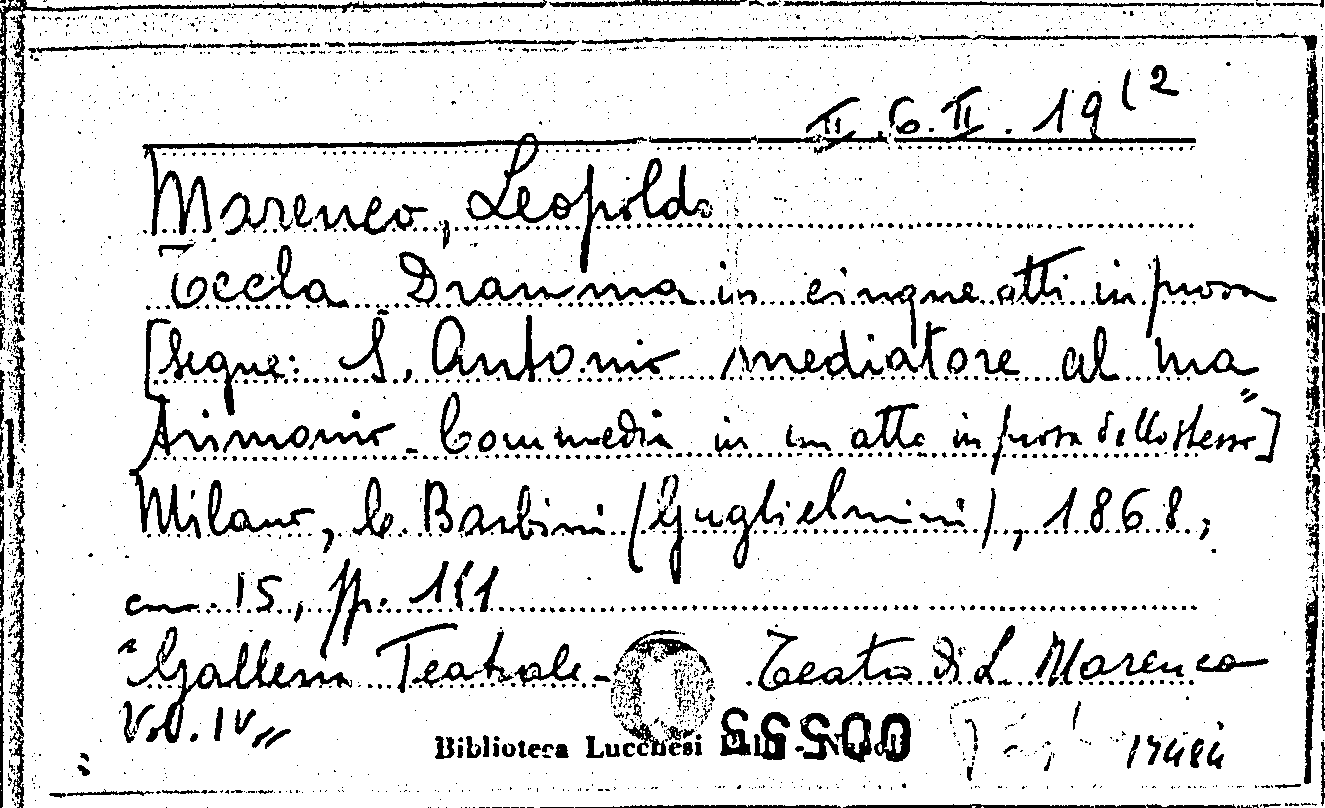 II.6.II.19(2
Marenco, Leopoldo
Tecla Dramma in cinque atti in prosa
[Segue: S. Antonio mediatore al ma=
trimonio. Commedia in un atto in prosa dello stesso]
Milano, C. Barbini (Guglielmini), 1868,
cm. 15, pp. 111
"Galleria Teatrale - Teatro di L. Marenco
Vol. IV"
Biblioteca Lucchesi Palli - Napoli
00555